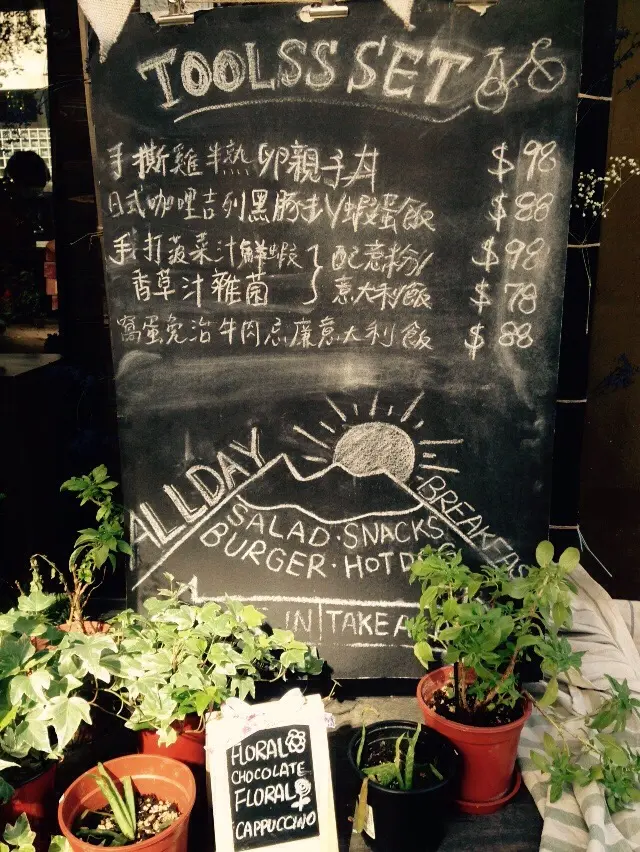 TOOLSS SET
手撕雞半熟卵親子丼 $98
日式咖哩吉列黑豚扒/蝦蛋飯 $88
手打菠菜汁鮮蝦 配意粉/ $98
香草汁雜菌 意大利飯 $78
窩蛋免治牛肉忌廉意大利飯 $88
ALLDAY BREAKFAS
SALAD·SNACKS
BURGER·HOTD
IN TAKEA
FLORAL
CHOCOLATE
FLORAL
CAPPUCCINO